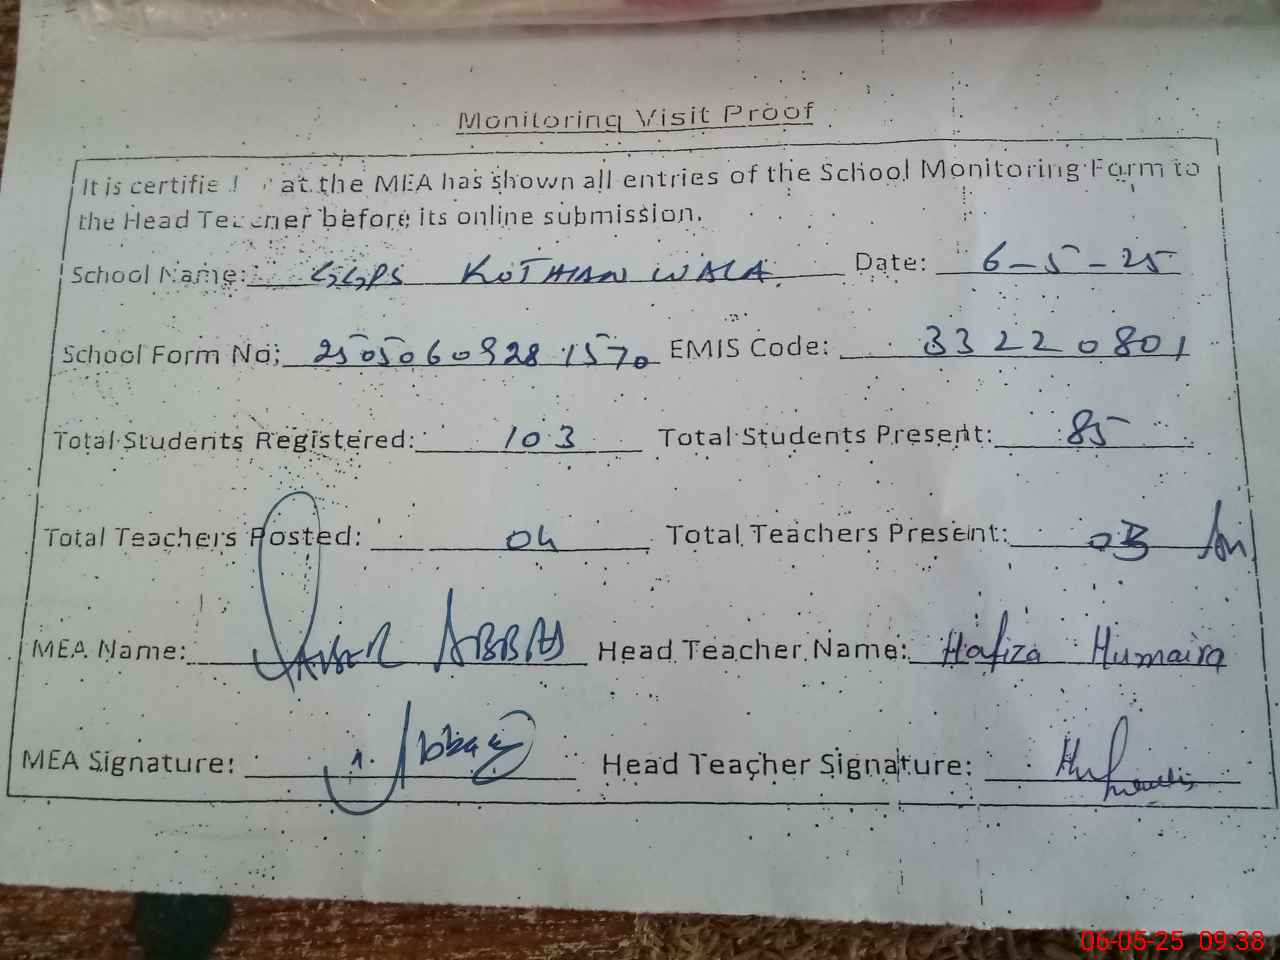 Monitoring Visit Proof
It is certifie at the MEA has shown all entries of the School Monitoring Form to
the Head Teacher before its online submission.
School Name: GGPS KOTHIAN WALA Date: 6-5-25
School Form No: 25050609281570 EMIS Code: 33220801
Total Students Registered: 103 Total Students Present: 85
Total Teachers Posted: 04 Total Teachers Present: 03
MEA Name: ABBAS Head Teacher Name: Hafiza Humaira
MEA Signature: Abbas Head Teacher Signature:
06-05-25 09:38